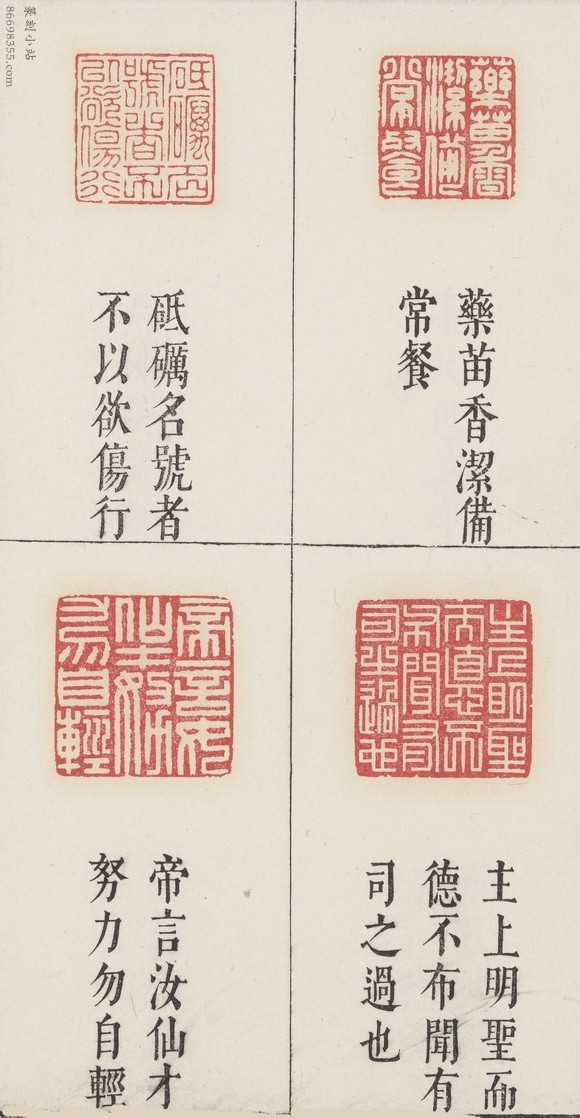 藥苗香潔備
常餐
砥礪名號者
不以欲傷行
主上明聖而
德不布聞有
司之過也
帝言汝仙才
努力勿自輕
篆刻小站
86698355.com